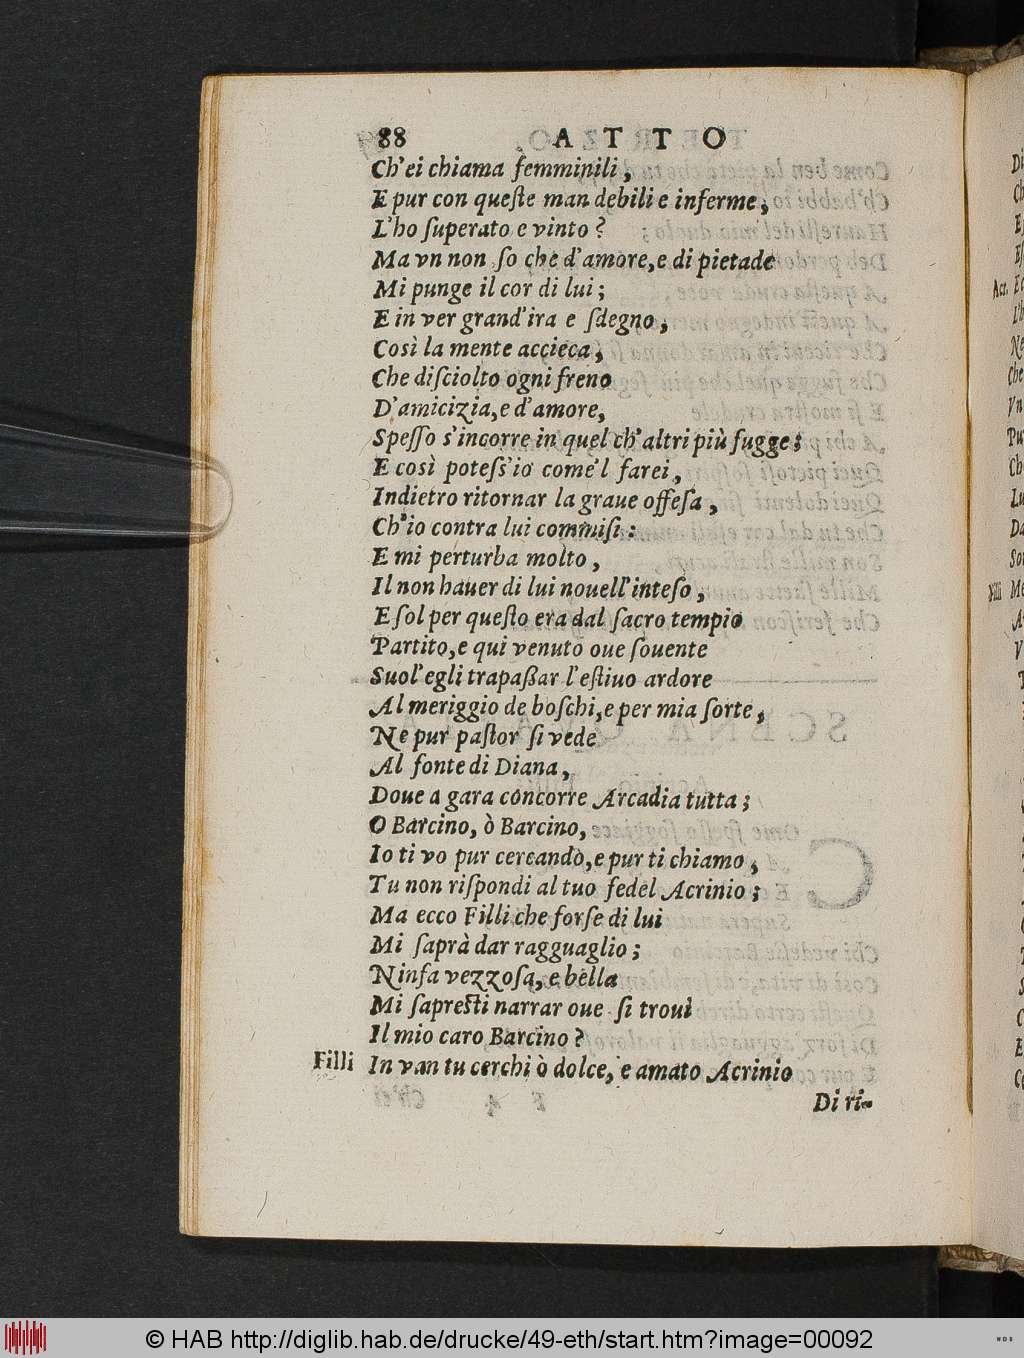 88 ATTO
Ch'ei chiama femminili,
E pur con queſte man debili e inferme,
L'ho ſuperato e vinto?
Ma vn non ſo che d'amore, e di pietade
Mi punge il cor di lui;
E in ver grand'ira e ſdegno,
Così la mente accieca,
Che diſciolto ogni freno
D'amicizia, e d'amore,
Speſſo s'incorre in quel ch'altri più fugge;
E così poteſs'io come'l farei,
Indietro ritornar la graue offeſa,
Ch'io contra lui commiſi:
E mi perturba molto,
Il non hauer di lui nouell'inteſo,
E ſol per queſto era dal ſacro tempio
Partito, e qui venuto oue ſouente
Suol'egli trapaßar l'eſtiuo ardore
Al meriggio de boſchi, e per mia ſorte,
Ne pur paſtor ſi vede
Al fonte di Diana,
Doue a gara concorre Arcadia tutta;
O Barcino, ò Barcino,
Io ti vo pur cercando, e pur ti chiamo,
Tu non riſpondi al tuo fedel Acrinio;
Ma ecco Filli che forſe di lui
Mi ſaprà dar ragguaglio;
Ninfa vezzoſa, e bella
Mi ſapreſti narrar oue ſi troui
Il mio caro Barcino?
Filli In van tu cerchi ò dolce, e amato Acrinio
Di ri-
Acr.
Filli
© HAB http://diglib.hab.de/drucke/49-eth/start.htm?image=00092